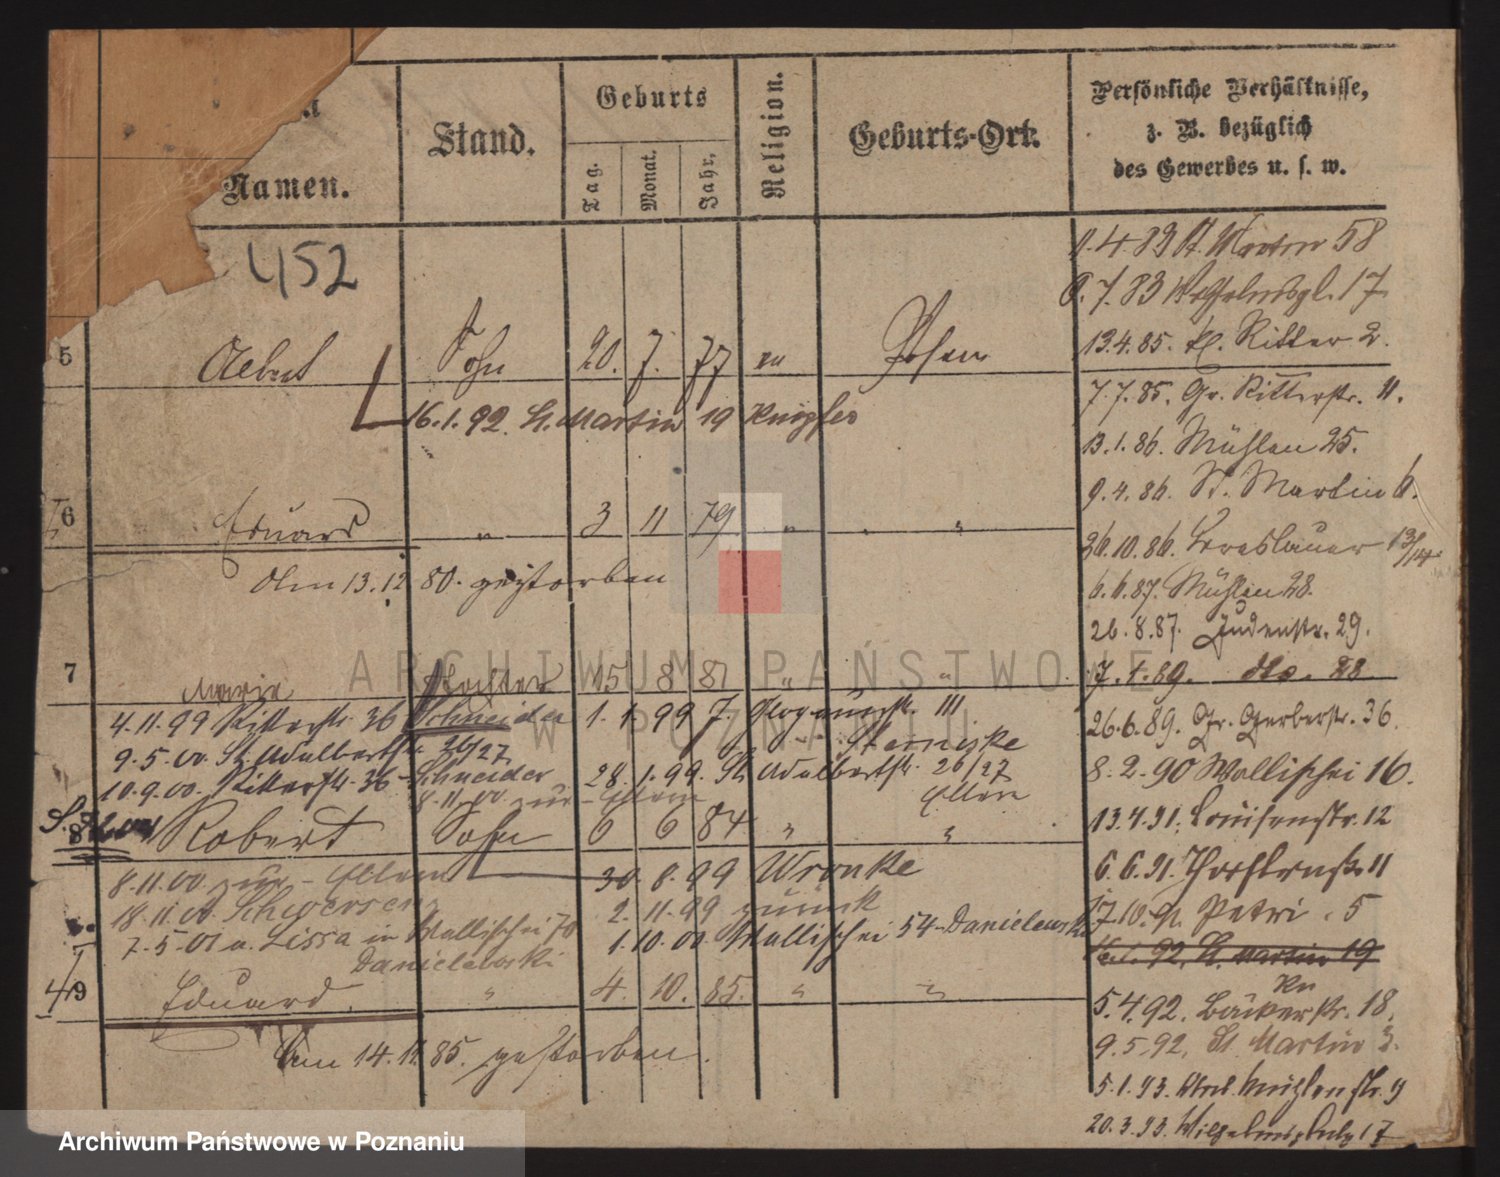 Namen.
Stand.
Geburts
Tag.
Monat.
Jahr.
Religion.
Geburts-Ort.
Persönliche Verhältnisse,
z. B. bezüglich
des Gewerbes u. s. w.
452
1.4.83 St. Martin 58
6.7.83 Wilhelmspl. 17
5 Albert Sohn 20. 7. 77 ev Posen
13.4.85. kl. Ritter 2.
16.1.92. St. Martin 19
7.7.85. Gr. Ritterstr. 11.
13.1.86. Mühlen 25.
9.4.86. St. Martin 6.
6 Eduard " 3 11 79 " "
26.10.86. Breslauer 13/14
Am 13.12 80. gestorben
6.6.87. Mühlen 28.
26.8.87. Judenstr. 29.
7 Marie Tochter 15 8 81 " "
7.4.89. dto. 28
4.11.99 Ritterstr. 36 Schneider 1. 1. 99 7. III
26.6.89. Gr. Gerberstr. 36.
9.5.00. St. Adalbertstr. 26/27
8.2.90 Wallischei 16.
10.9.00. Ritterstr. 36 Schneider 28.1.99. St. Adalbertstr. 26/27
8.11.00 zur - Eltern Eltern
8 Robert Sohn 6 6 84 " "
13.4.91. Louisenstr. 12
8.11.00 zur - Eltern 30.8.99 Wronke
6.6.91. 11
18.11.00. Schwersenz 2.11.99 zurück
17.10.91. Petri 5
7.5.01 a. Lissa in Wallischei 70 1.10.00. Wallischei 54 - Danielewski
Danielewski
92. St. Martin 19
9 Eduard. " 4. 10. 85. " "
5.4.92. Bäckerstr. 18.
Am 14.11.85. gestorben.
9.5.92. St. Martin 3.
5.1.93. Mühlenstr. 9
20.3.93. Wilhelmsplatz 17
ARCHIWUM PAŃSTWOWE
W POZNANIU
Archiwum Państwowe w Poznaniu